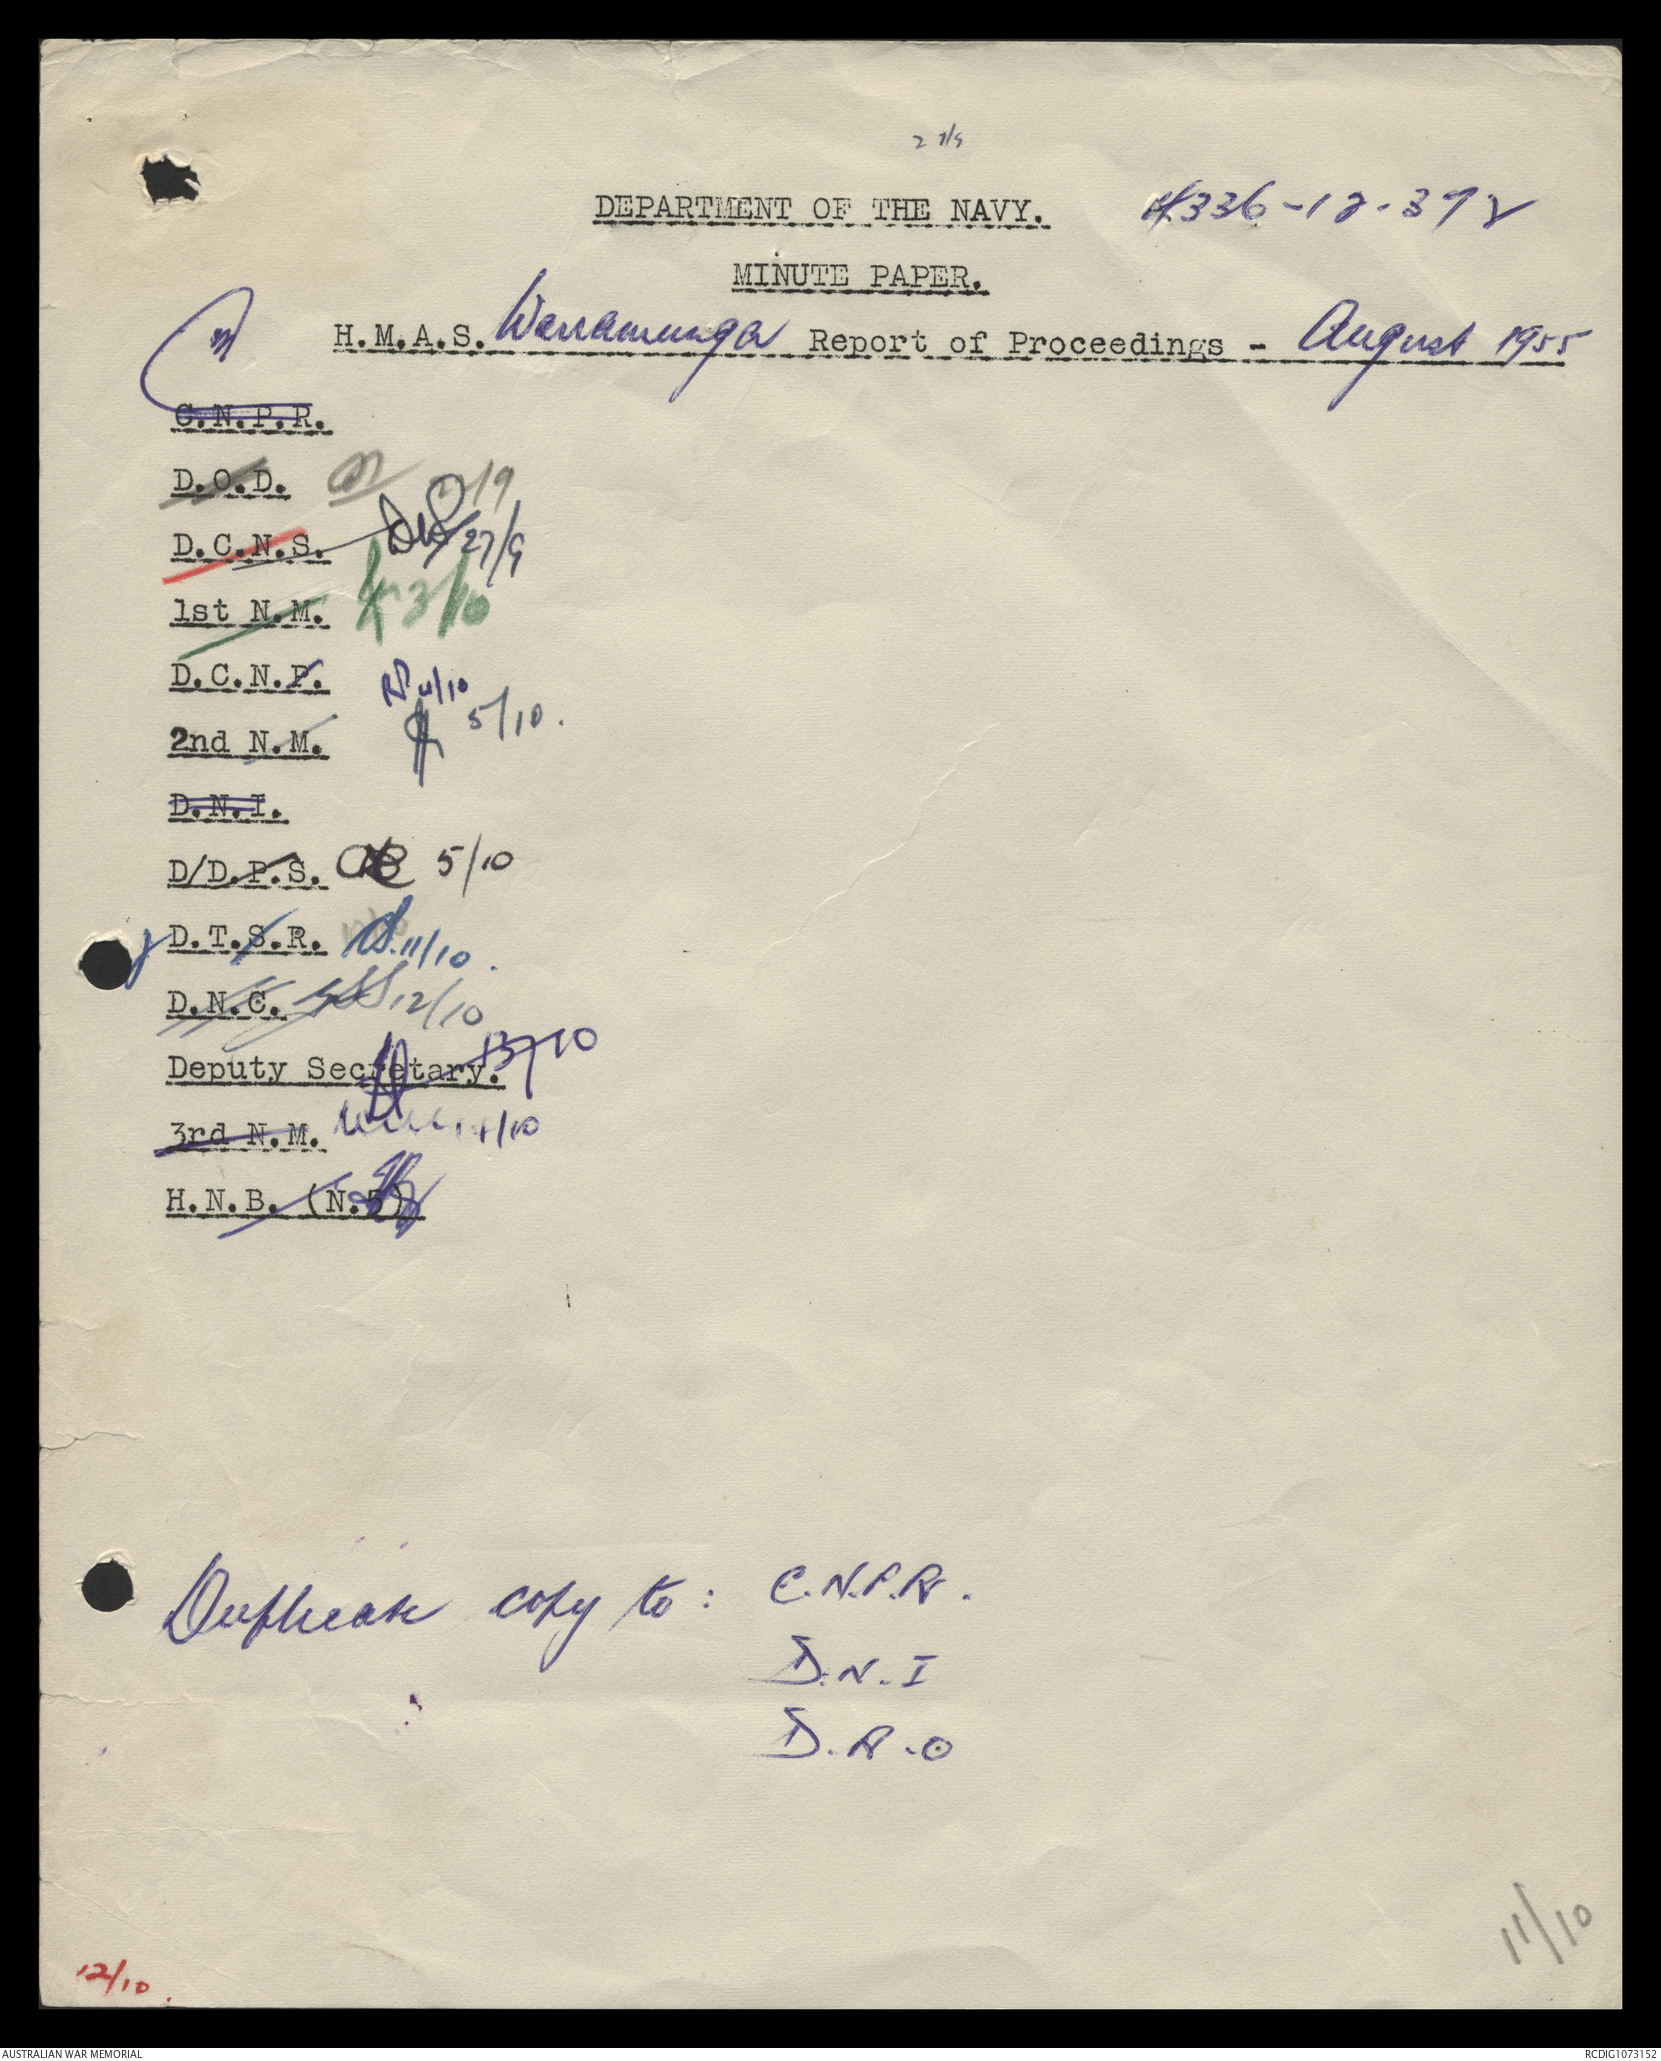 DEPARTMENT OF THE NAVY.
MINUTE PAPER.
H.M.A.S. Warramunga Report of Proceedings - August 1955
C.N.P.R.
D.O.D.
D.C.N.S. 27/9
1st N.M. 3/10
D.C.N.P. 4/10
2nd N.M. 5/10.
D.N.I.
D/D.P.S. 5/10
D.T.S.R. 11/10.
D.N.C. 12/10
Deputy Secretary. 13/10
3rd N.M. /10
H.N.B. (N.5)
Duplicate copy to: C.N.P.R.
D.N.I
D.R.O
11/10
12/10.
AUSTRALIAN WAR MEMORIAL
RCDIG1073152